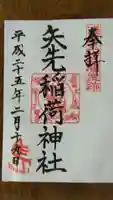 奉拝
矢先稲荷神社
平成二十五年二月十九日